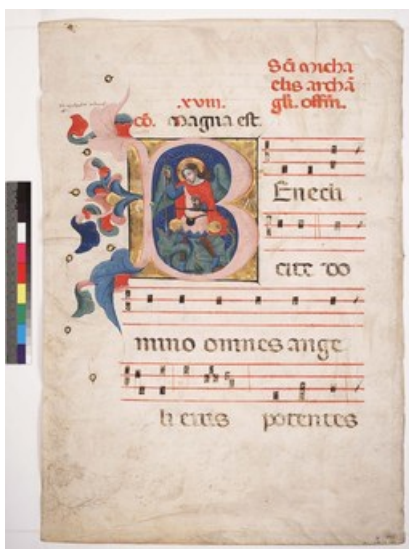 Sc̄i micha
elis archā
gli. offm̄.
.xviii.
cō. magna est.
BEnedi
cite do
mino omnes ange
li eius potentes